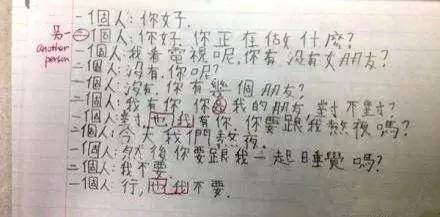 一個人: 你好.
另一
another person
二個人: 你好. 你正在做什麼?
一個人: 我看電視呢. 你有沒有女朋友?
二個人: 沒有. 你呢?
一個人: 沒有. 你有幾個朋友?
二個人: 我有你. 你是我的朋友 對不對?
一個人: 對. 也我有你. 你要跟我熬夜嗎?
二個人: 今天我們熬夜.
一個人: 然後你要跟我一起睡覺嗎?
二個人: 我不要.
一個人: 行, 也我不要.